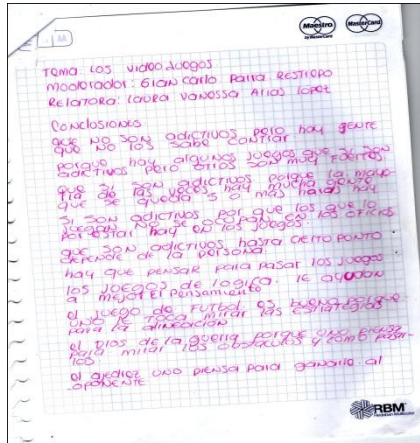 Maestro
by MasterCard
MasterCard
AA
Tema: Los videoJuegos
Moderador: Gian Carlo Parra Restrepo
Relatora: Laura Vanessa Arias Lopez
Conclusiones
que no son adictivos pero hay gente
que no los sabe
porque hay algunos Juegos que si son
adictivos pero otros son muy
que si son adictivos porque la mayo-
ria de las veces hay mucha gente
que se queda 5 o mas horas hay
si son adictivos por que los que lo
Juegan no se ocupan en los oficios
por estar hay en los Juegos.
que son adictivos hasta cierto punto
depende de la persona
hay que pensar para pasar los Juegos
los Juegos de logica. le ayudan
a mejor el pensamiento
el Juego de Futbol es bueno porque
uno le toca mirar las estrategias
para la alineación
el Dios de la guerra porque uno piensa
para mirar los obstaculos y como pasar-
los.
el ajedrez uno piensa para ganarle al
oponente
RBM